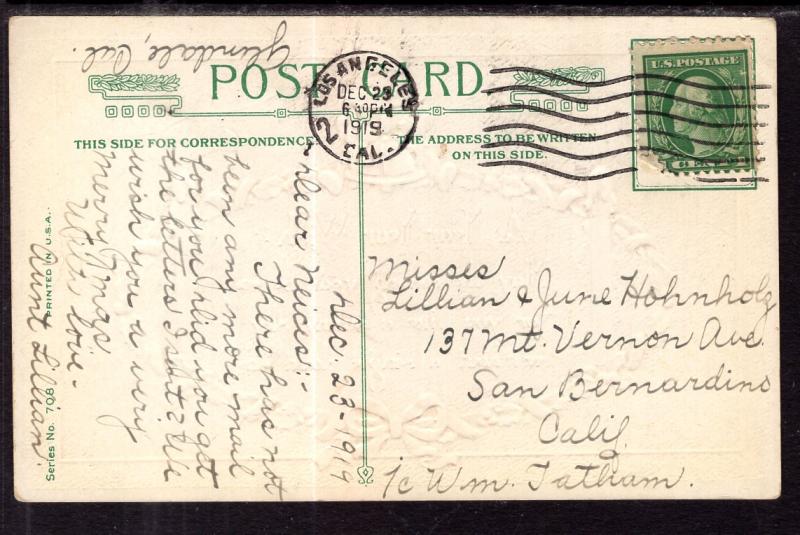 Glendale, Cal.
POST CARD
LOS ANGELES
DEC 23
6 30 PM
1919
2
CAL.
U.S. POSTAGE
THIS SIDE FOR CORRESPONDENCE.
THE ADDRESS TO BE WRITTEN
ON THIS SIDE.
Dec. 23-1919
Dear Neices:-
There has not
been any more mail
for you. Did you get
the letters I sent? We
wish you a very
merry Xmas
With love.
Aunt Lillian.
Misses
Lillian & June Hohnholz
137 Mt. Vernon Ave.
San Bernardino
Calif.
℅ Wm. Tatham.
Series No. 708
PRINTED IN U.S.A.